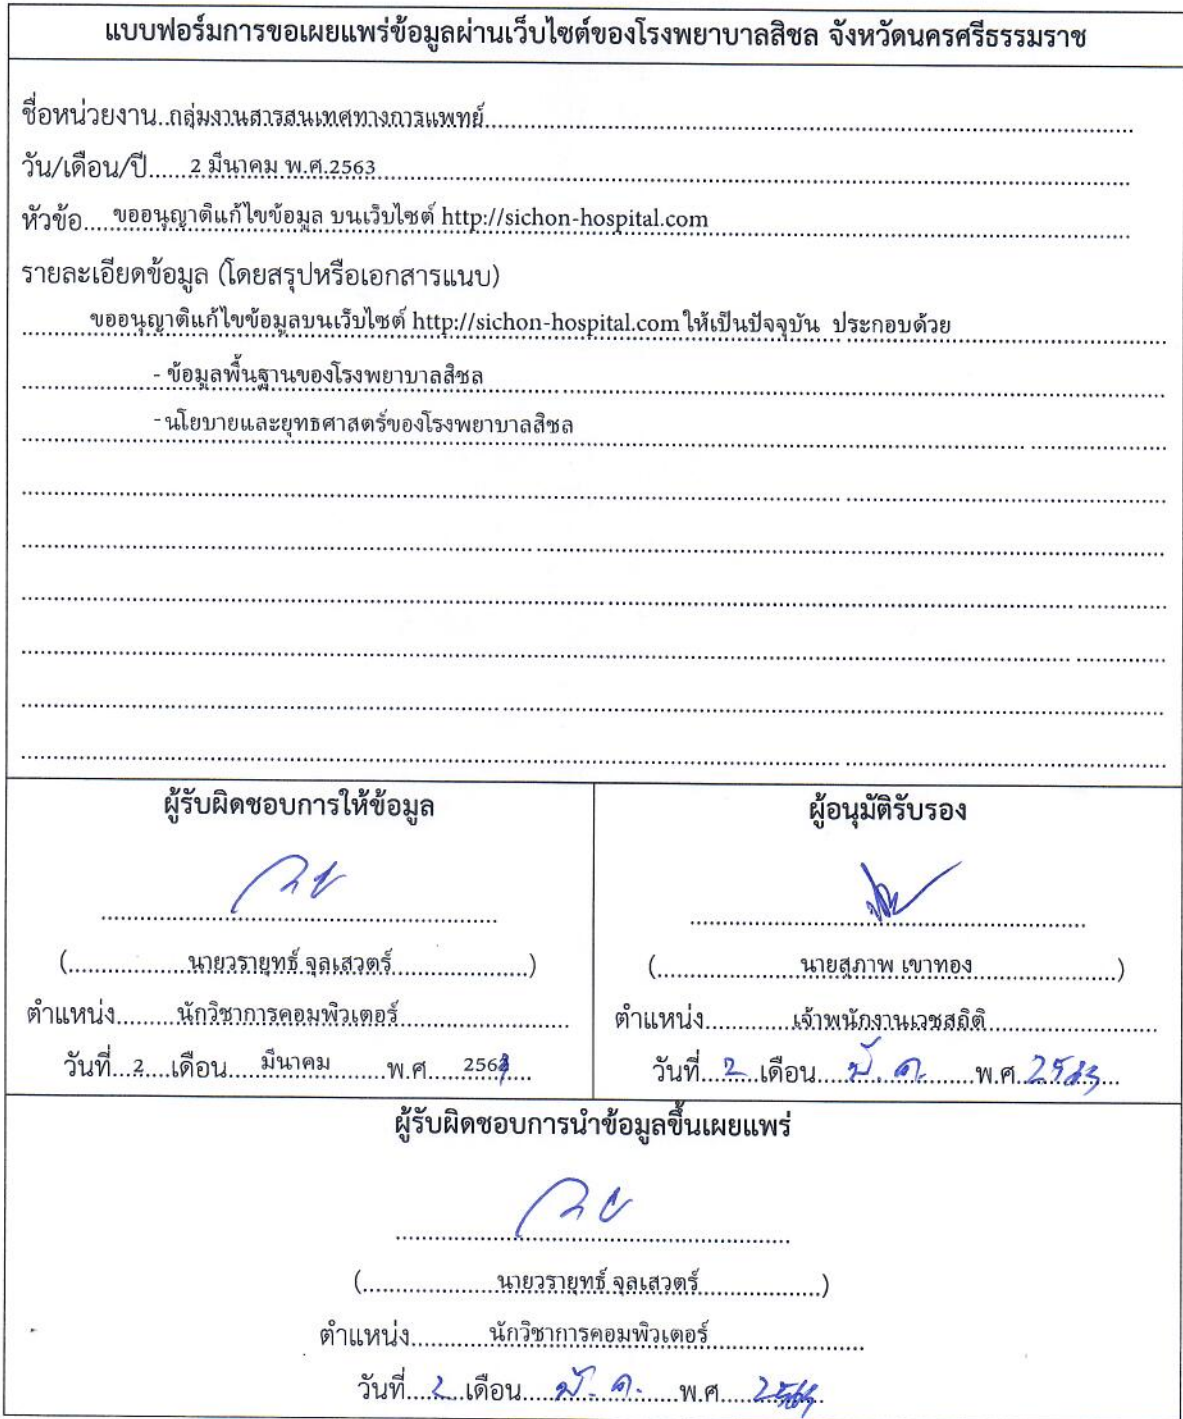 แบบฟอร์มการขอเผยแพร่ข้อมูลผ่านเว็บไซต์ของโรงพยาบาลสิชล จังหวัดนครศรีธรรมราช
ชื่อหน่วยงาน..กลุ่มงานสารสนเทศทางการแพทย์
วัน/เดือน/ปี......2 มีนาคม พ.ศ.2563
หัวข้อ....ขออนุญาติแก้ไขข้อมูล บนเว็บไซต์ http://sichon-hospital.com
รายละเอียดข้อมูล (โดยสรุปหรือเอกสารแนบ)
ขออนุญาติแก้ไขข้อมูลบนเว็บไซต์ http://sichon-hospital.com ให้เป็นปัจจุบัน ประกอบด้วย
- ข้อมูลพื้นฐานของโรงพยาบาลสิชล
-นโยบายและยุทธศาสตร์ของโรงพยาบาลสิชล
ผู้รับผิดชอบการให้ข้อมูล
(นายวรายุทธ์ จุลเสวตร์)
ตำแหน่ง.........นักวิชาการคอมพิวเตอร์
วันที่...2....เดือน.....มีนาคม........พ.ศ.....
ผู้อนุมัติรับรอง
(นายสุภาพ เขาทอง)
ตำแหน่ง.............เจ้าพนักงานเวชสถิติ
วันที่...2...เดือน....มี.ค.......พ.ศ. 2563
ผู้รับผิดชอบการนำข้อมูลขึ้นเผยแพร่
(นายวรายุทธ์ จุลเสวตร์)
ตำแหน่ง...........นักวิชาการคอมพิวเตอร์
วันที่...2...เดือน....มี.ค.......พ.ศ.....